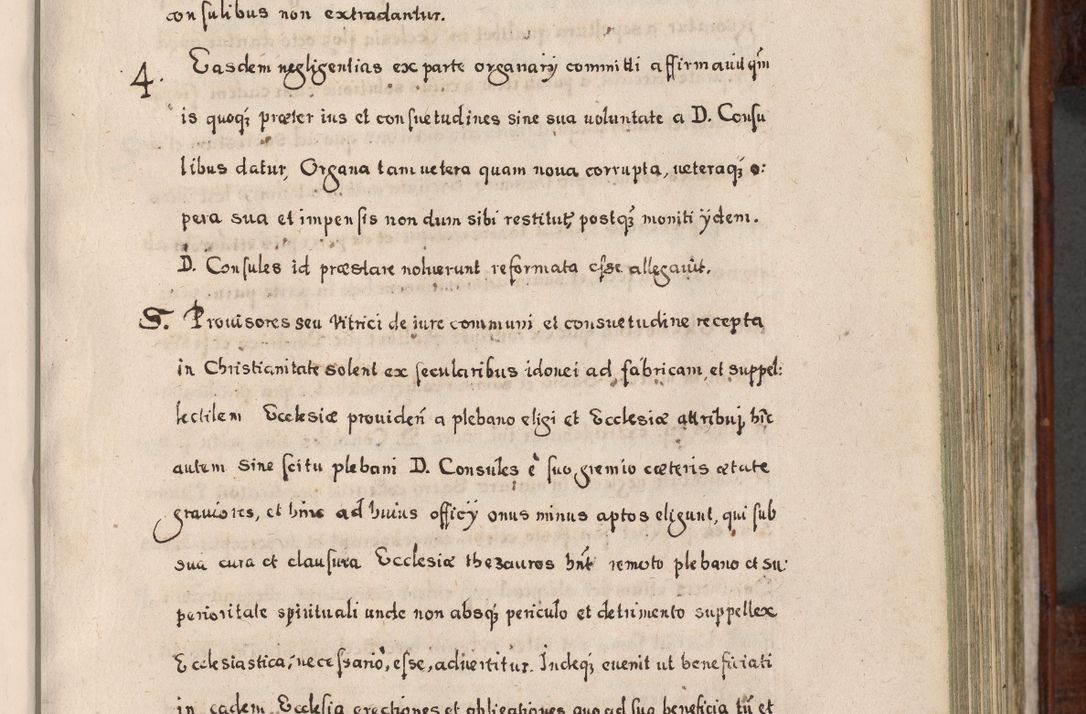 consulibus non extradantur.
4. Easdem negligentias ex parte organarÿ committi affirmauit qm̃
is quoq₃ præter ius et consuetudines sine sua uoluntate a D. Consu
libus datur, Organa tam uetera quam noua corrupta, ueteraq₃ o:
pera sua et impensis non dum sibi restitut, postq₃ moniti ÿdem.
D. Consules id præstare noluerunt reformata esse allegauit.
5. Prouisores seu Vitrici de iure communi et consuetudine recepta
in Christianitate solent ex secularibus idonei ad fabricam et suppel:
lectilem Ecclesiæ prouideñ a plebano eligi et Ecclesiæ attribuj, hic
autem sine scitu plebani D. Consules è suo gremio cæteris ætate
grauiores, et hinc ad huius officÿ onus minus aptos eligunt, qui sub
sua cura et clausura Ecclesiæ thezauros hnt̃ remoto plebano et su:
perioritate spirituali unde non absq₃ periculo et detrimento suppellex
Ecclesiastica, necessario, esse, aduertitur. Indeq₃ euenit ut beneficiati
in eadem Ecclesia erectiones et obligationes quo ad sua beneficia tũ et